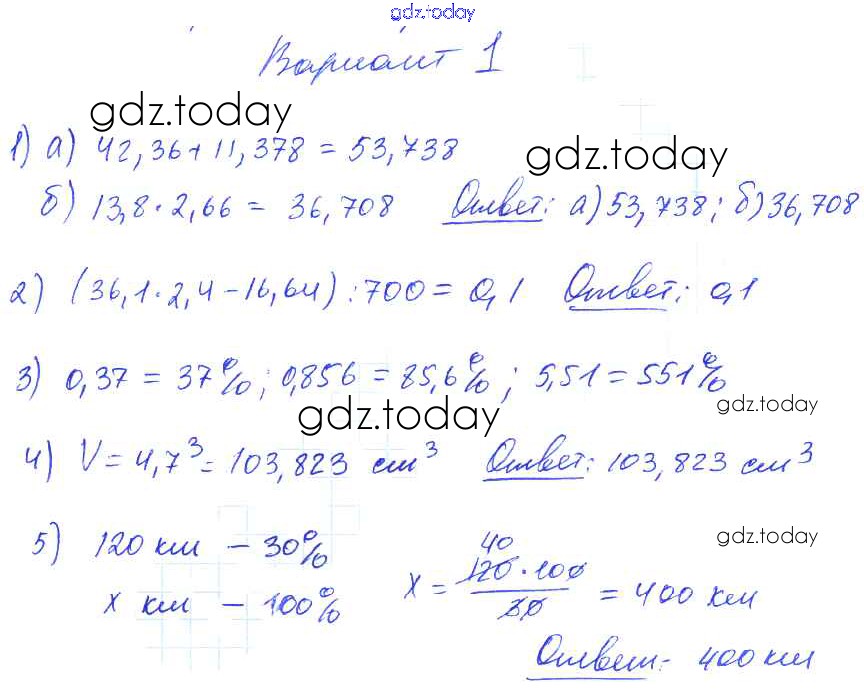 gdz.today
Вариант 1
gdz.today
1) а) 42,36+11,378 = 53,738
gdz.today
б) 13,8·2,66 = 36,708 Ответ: а)53,738; б)36,708
2) (36,1·2,4-16,64):700 = 0,1 Ответ: 0,1
3) 0,37 = 37%; 0,856 = 85,6%; 5,51 = 551%
gdz.today
gdz.today
4) V = 4,7³ = 103,823 см³ Ответ: 103,823 см³
gdz.today
5) 120 км – 30%
x км – 100%
40
x = 120·100 / 30 = 400 км
Ответ: 400 км